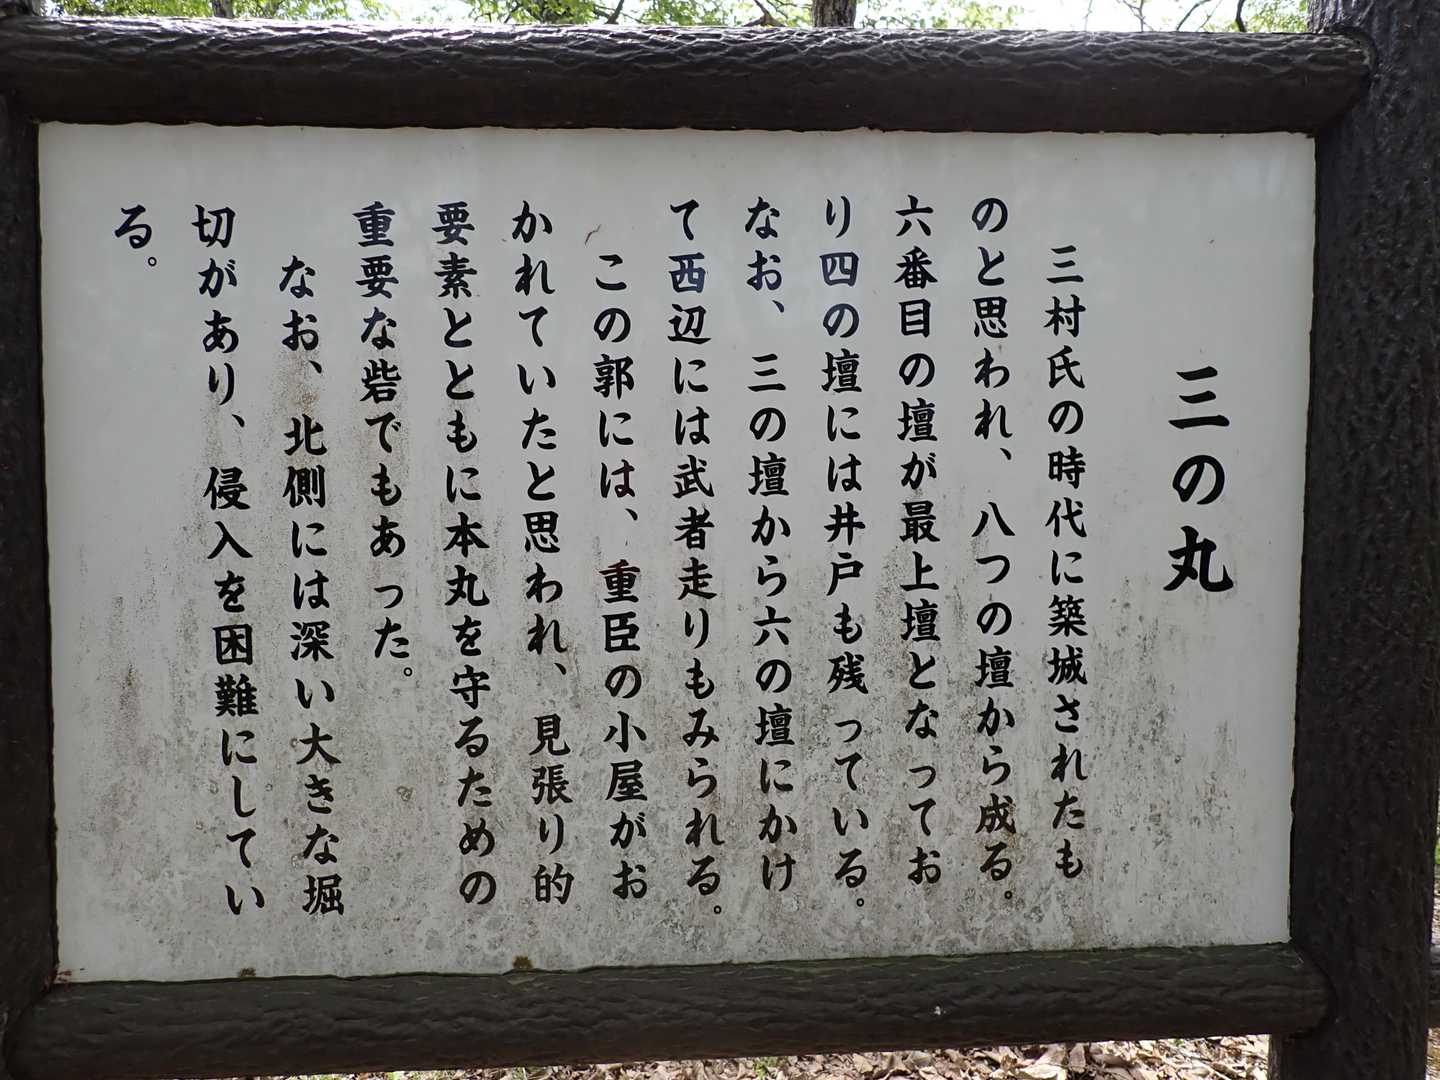 三の丸
三村氏の時代に築城されたも
のと思われ、八つの壇から成る。
六番目の壇が最上壇となってお
り四の壇には井戸も残っている。
なお、三の壇から六の壇にかけ
て西辺には武者走りもみられる。
この郭には、重臣の小屋がお
かれていたと思われ、見張り的
要素とともに本丸を守るための
重要な砦でもあった。
なお、北側には深い大きな堀
切があり、侵入を困難にしてい
る。